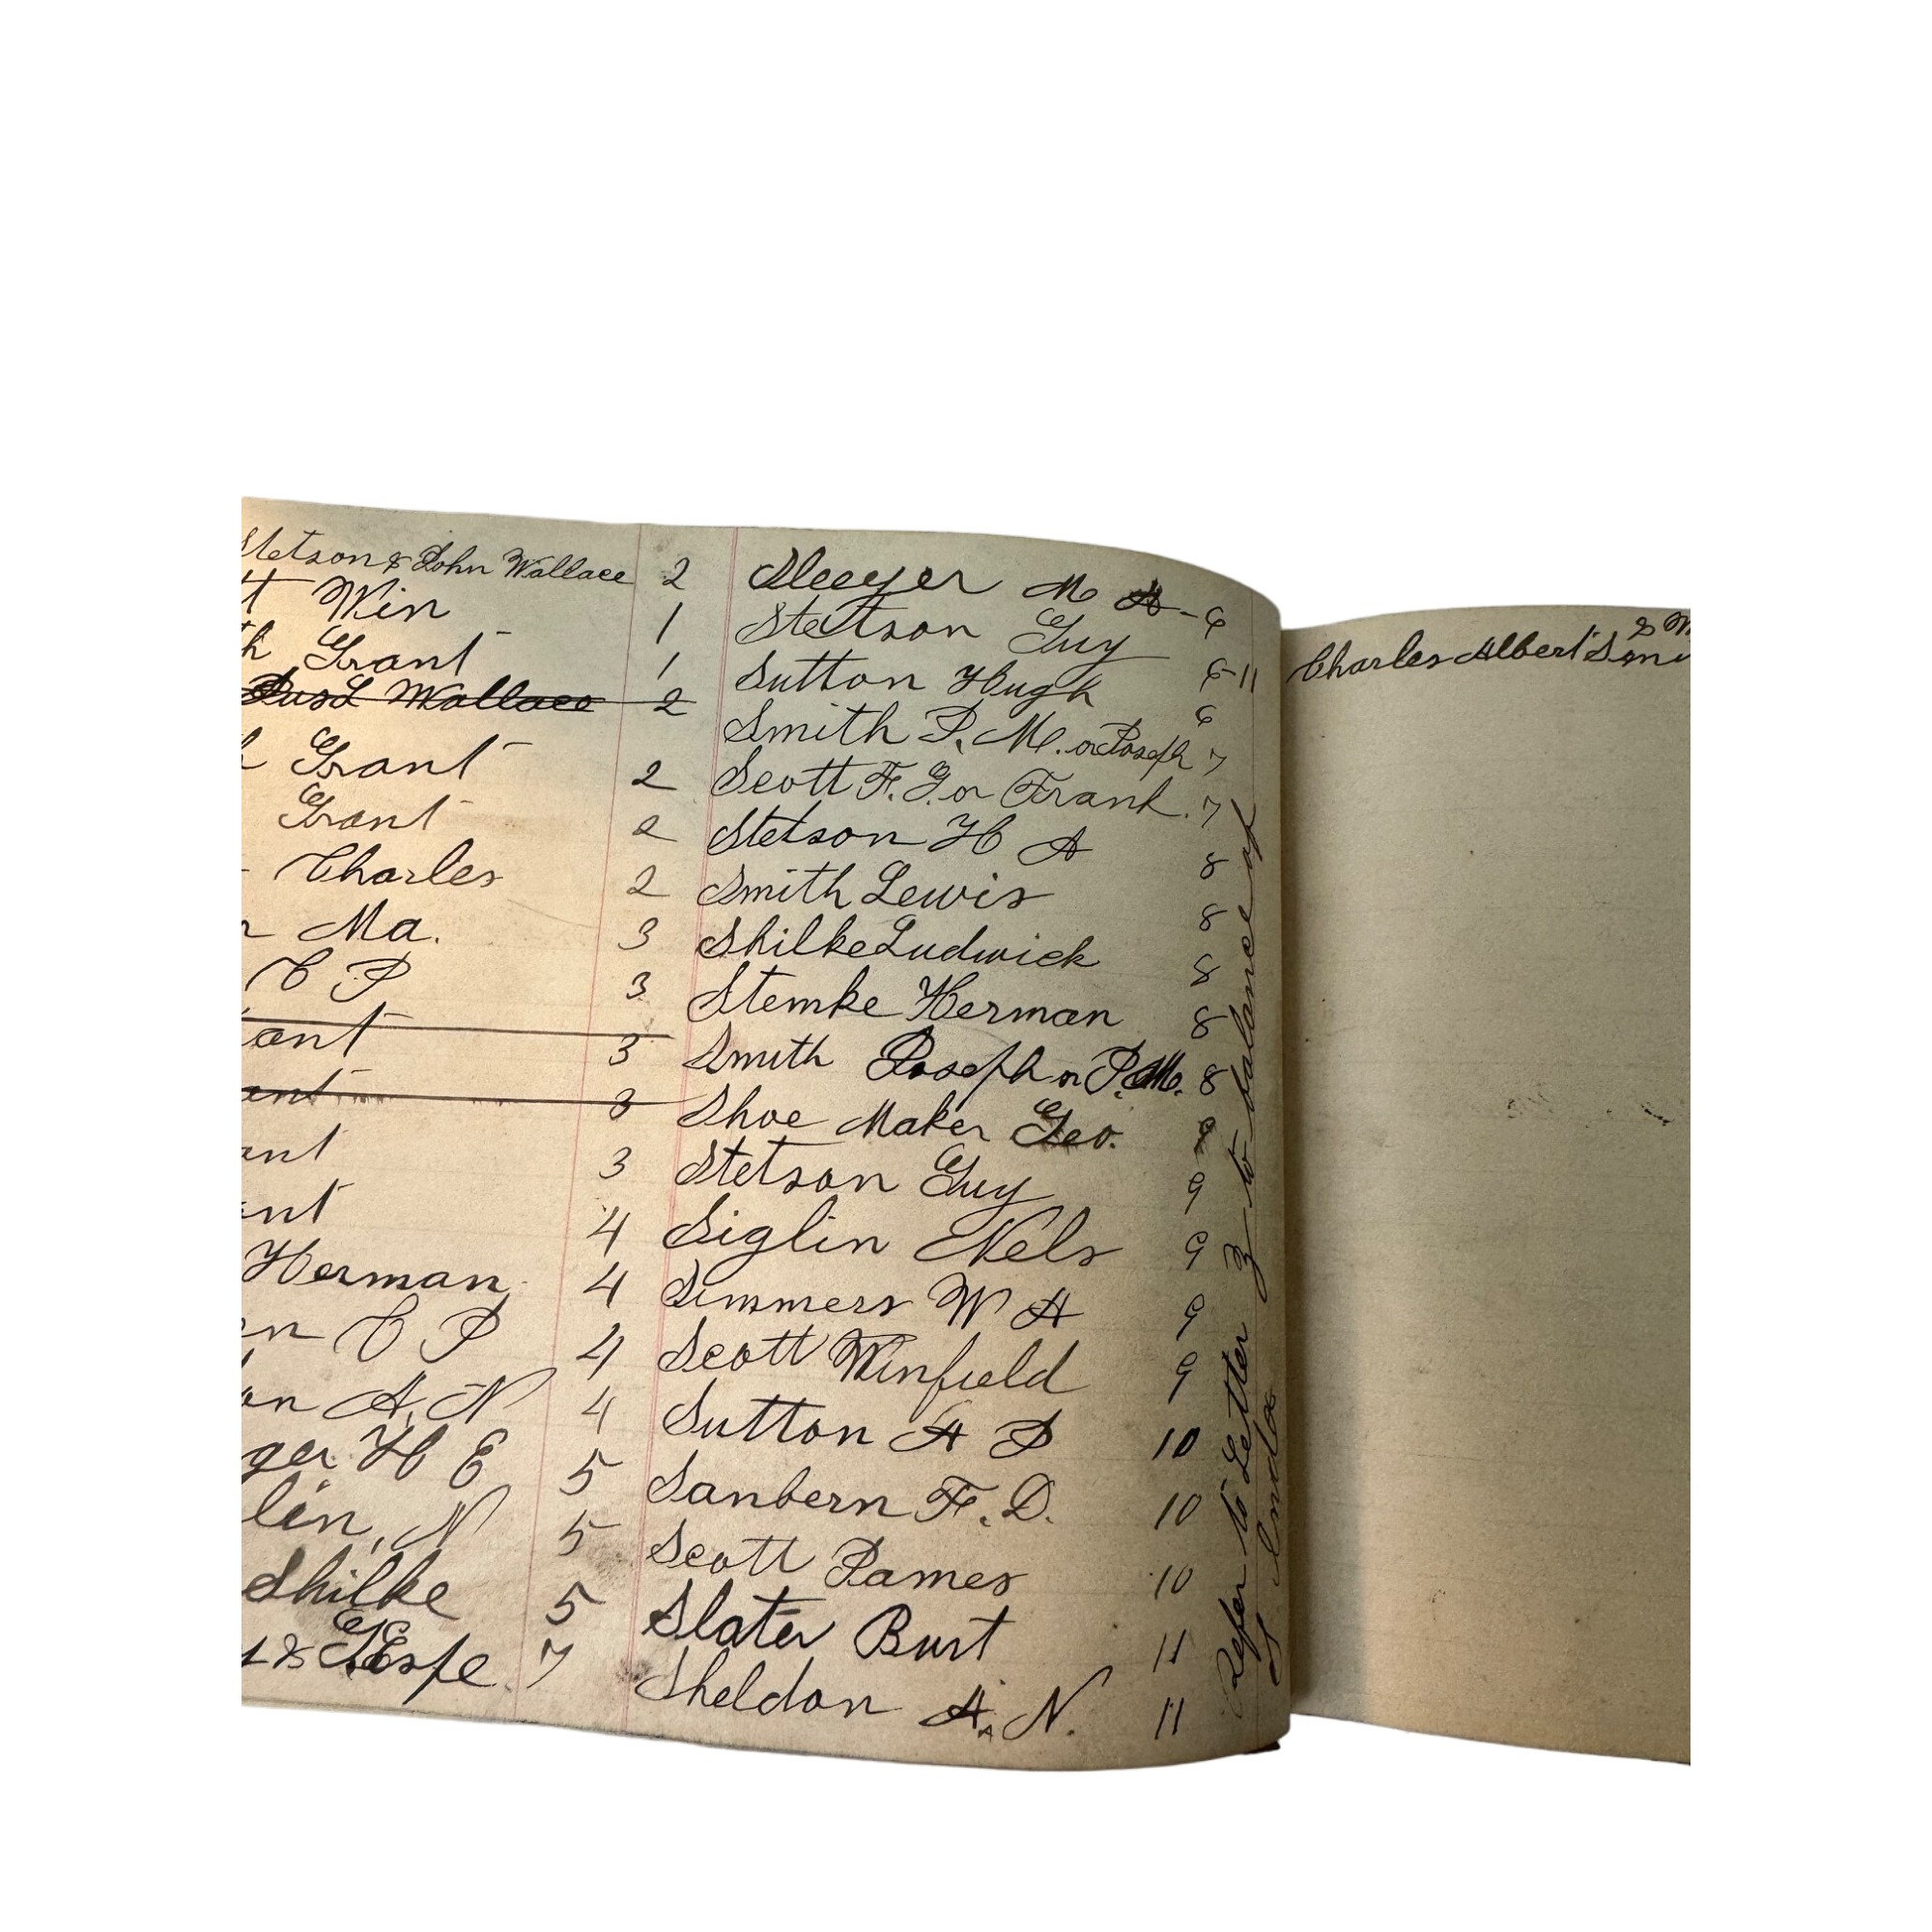 Stetson & John Wallace 2
Win 1
Grant 1
Wallace 2
Grant 2
Grant 2
Charles 2
Ma. 3
C P 3
ant 3
ant 3
ant 3
nt 4
Herman 4
n C P 4
on A. N 4
ger H E 5
lin, N 5
Shilke 5
& 7
M A - 6
Stetson Guy 6-11
Sutton Hugh 6
Smith J. M. or Joseph 7
Scott F. G. or Frank. 7
Stetson H A 8
Smith Lewis 8
Shilke Ludwick 8
Stemke Herman 8
Smith Joseph or J. M. 8
Shoe Maker Geo. 9
Stetson Guy 9
Siglin Nels 9
Simmers W A 9
Scott Winfield 9
Sutton A S 10
Sanbern F. D. 10
Scott James 10
Slater Burt 11
Sheldon A. N. 11
Refer to Letter Z to balance of
S Index
& M
Charles Albert